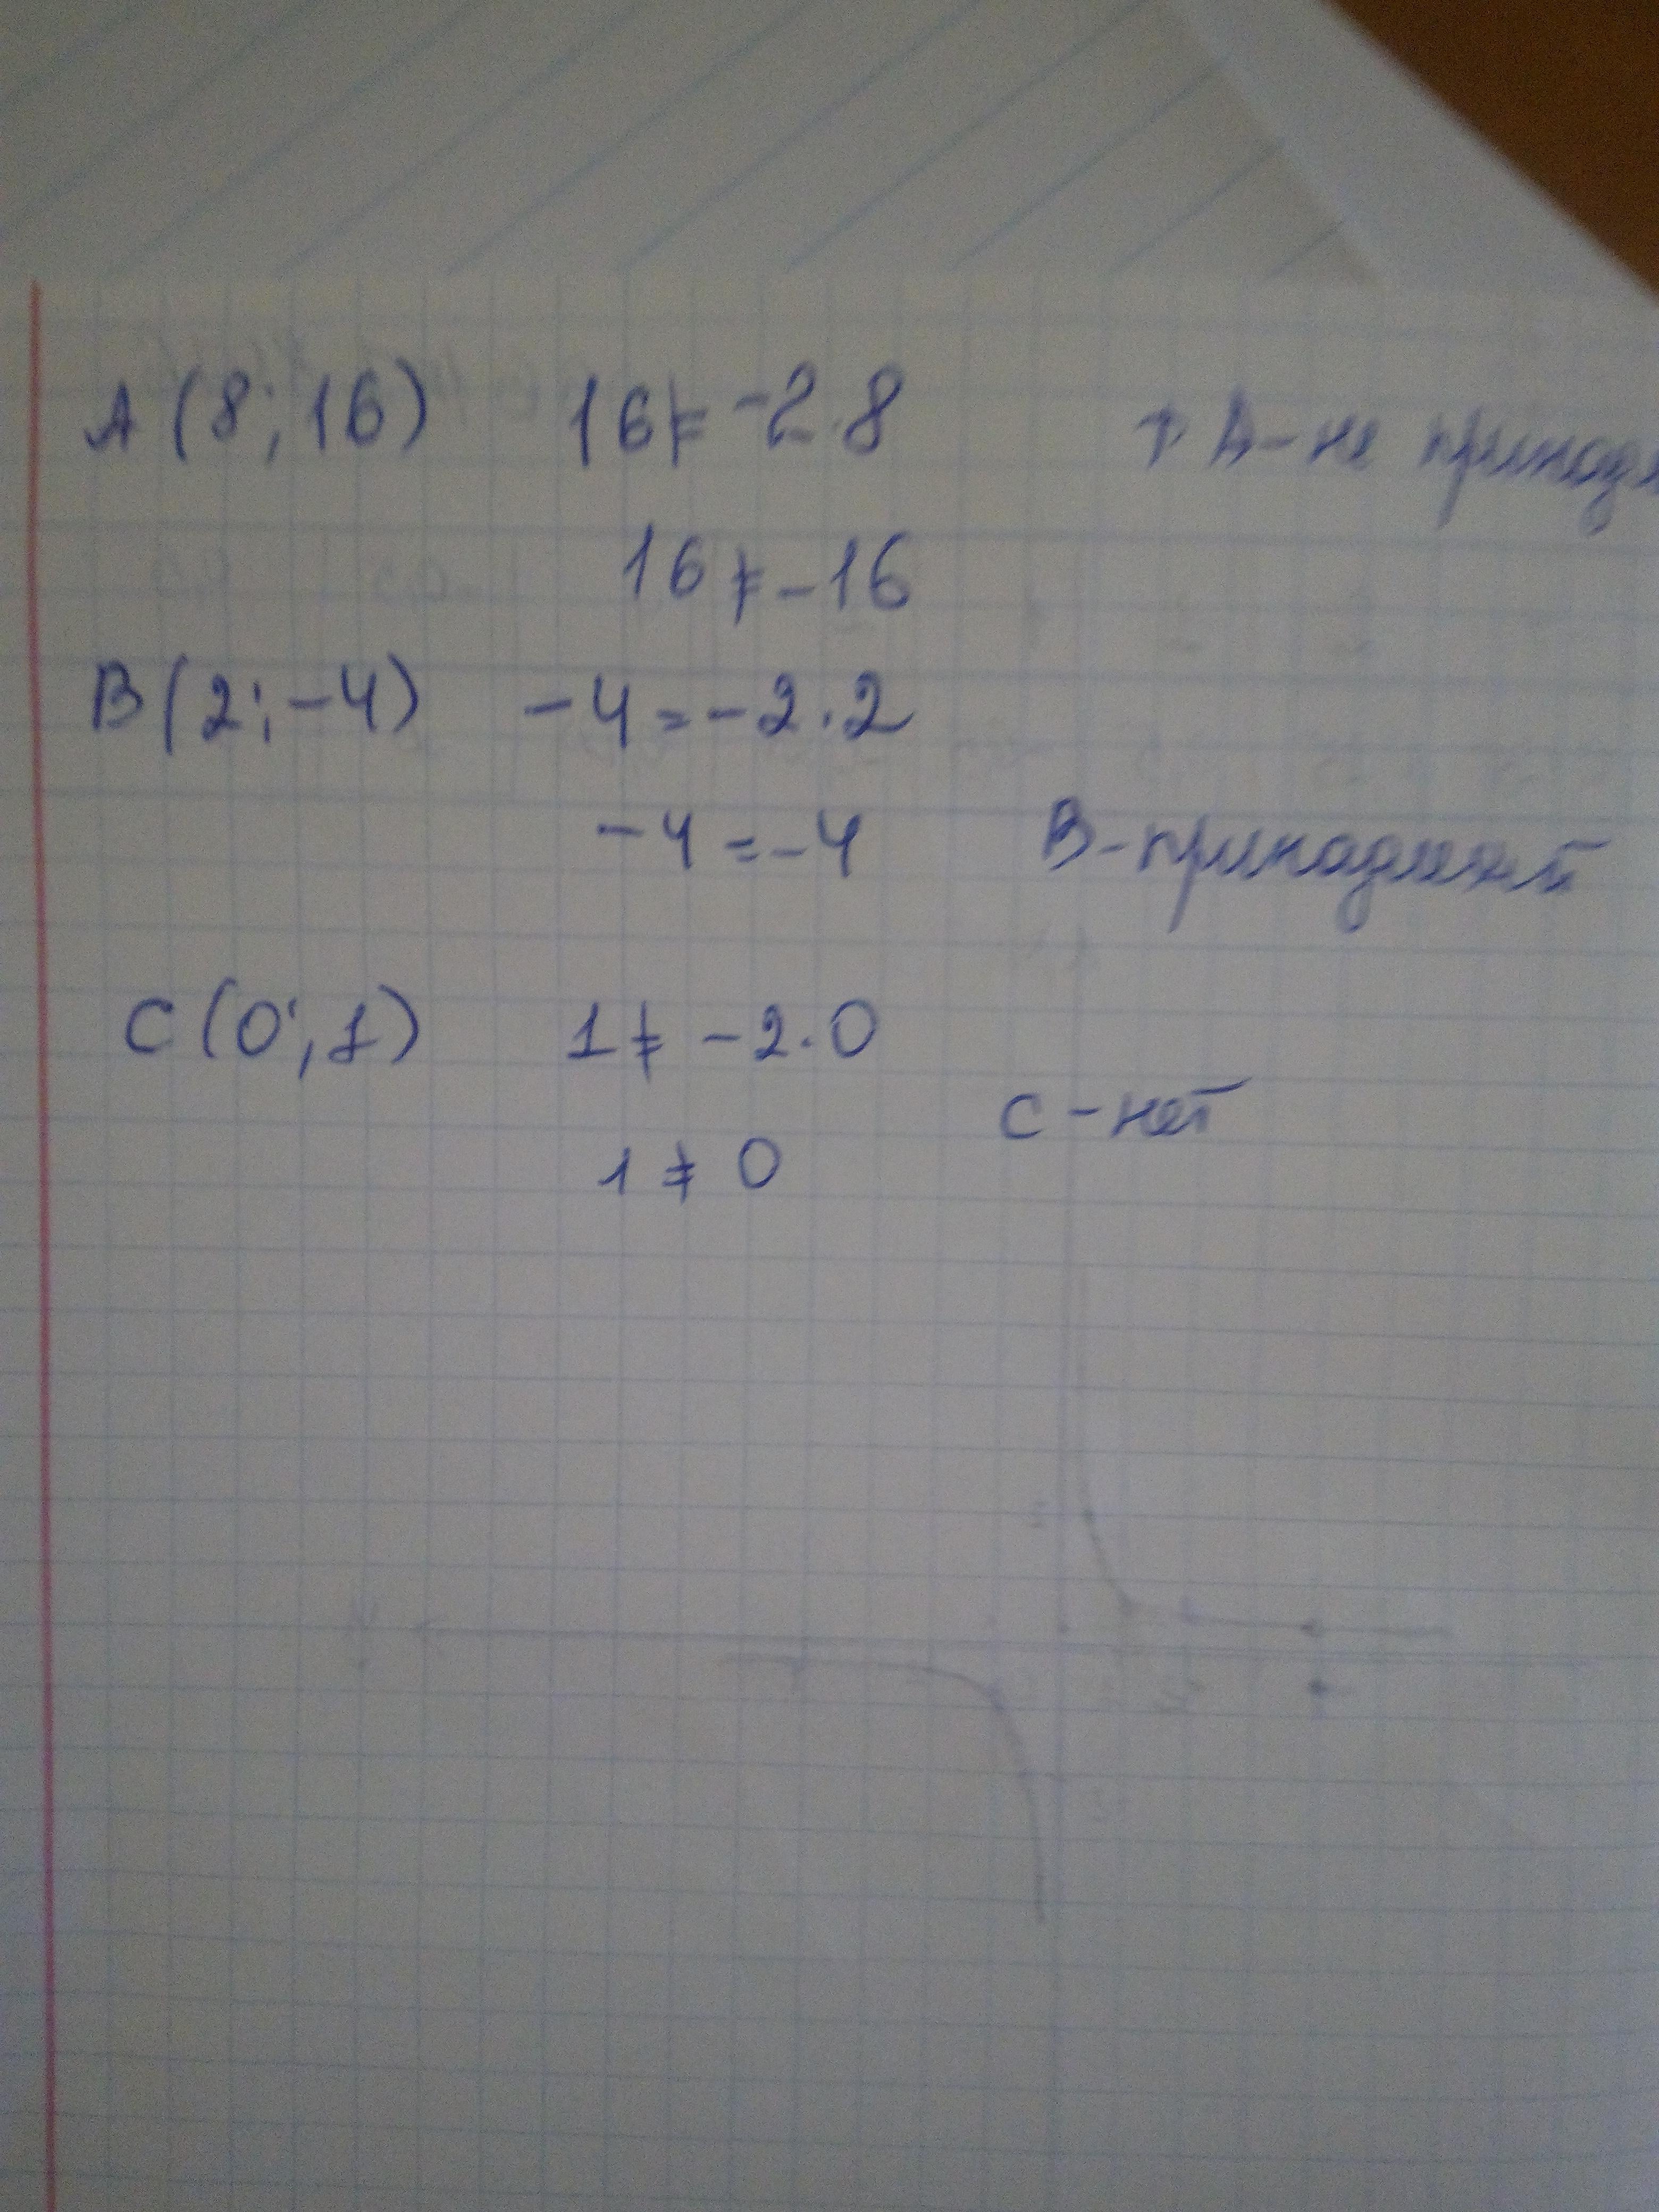 A (8; 16) 16 ≠ -2·8 т. A - не принадл
16 ≠ -16
B (2; -4) -4 = -2·2
-4 = -4 B - принадлежит
C (0; 1) 1 ≠ -2·0
C - нет
1 ≠ 0